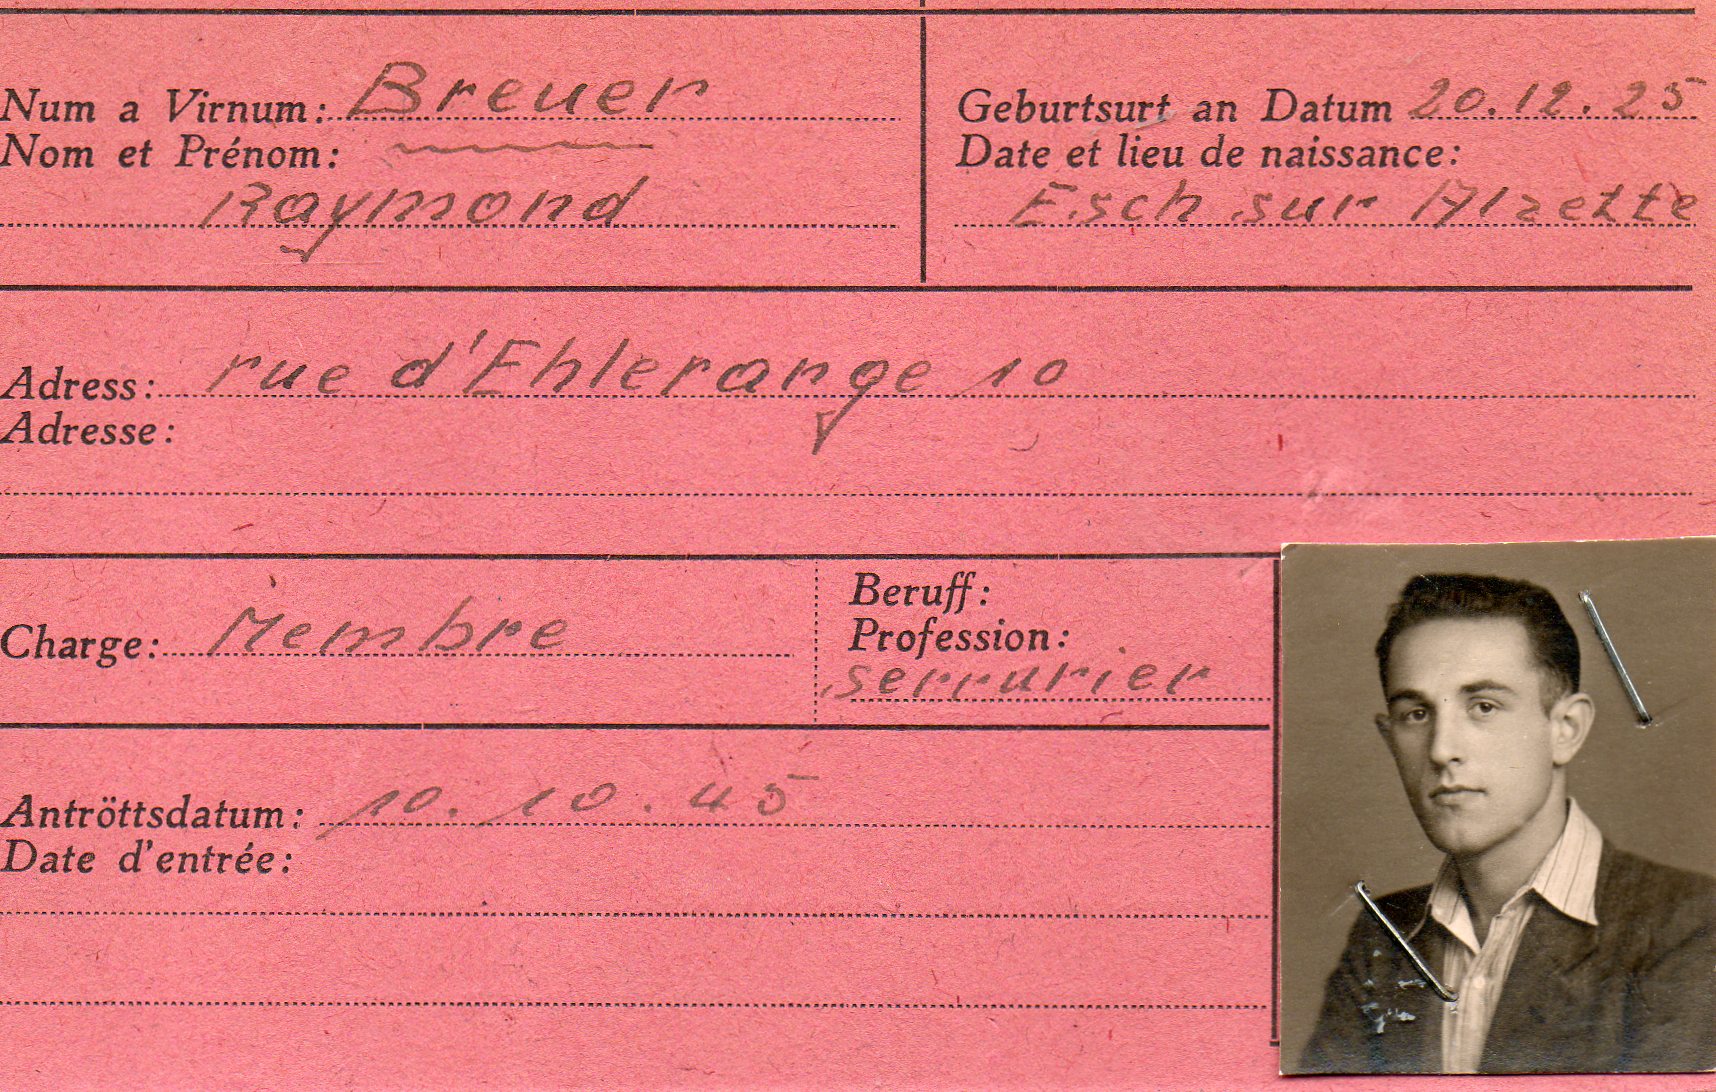 Num a Virnum: Breuer
Nom et Prénom:
Raymond
Geburtsurt an Datum 20.12.25
Date et lieu de naissance:
Esch sur Alzette
Adress: rue d'Ehlerange 10
Adresse:
Charge: Membre
Beruff:
Profession:
serrurier
Antröttsdatum: 10.10.45
Date d'entrée: